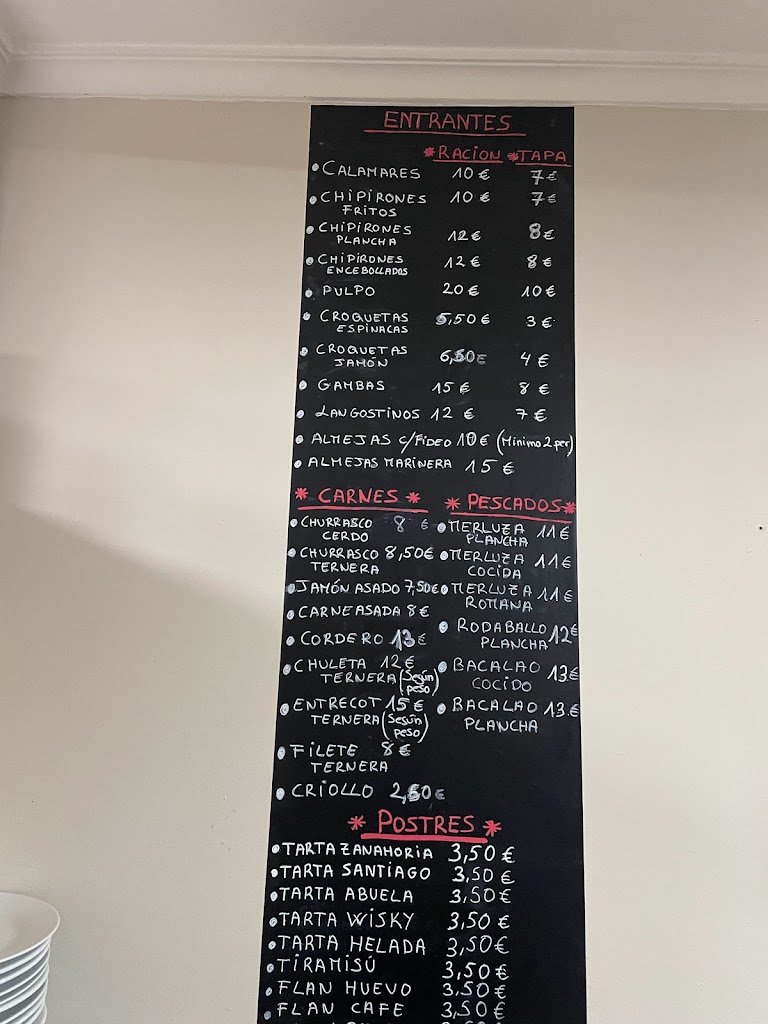 ENTRANTES
*RACION *TAPA
• CALAMARES 10 € 7 €
• CHIPIRONES 10 € 7 €
FRITOS
• CHIPIRONES
PLANCHA 12 € 8 €
• CHIPIRONES 12 € 8 €
ENCEBOLLADOS
• PULPO 20 € 10 €
• CROQUETAS 5,50 € 3 €
ESPINACAS
• CROQUETAS 6,50 € 4 €
JAMÓN
• GAMBAS 15 € 8 €
• LANGOSTINOS 12 € 7 €
• ALMEJAS C/FIDEO 10 € (Minimo 2 per)
• ALMEJAS MARINERA 15 €
* CARNES *
• CHURRASCO 8 €
CERDO
• CHURRASCO 8,50€
TERNERA
• JAMÓN ASADO 7,50€
• CARNE ASADA 8 €
• CORDERO 13 €
• CHULETA 12 €
TERNERA (Según
peso)
• ENTRECOT 15 €
TERNERA (Según
peso)
• FILETE 8 €
TERNERA
• CRIOLLO 2,50 €
* PESCADOS *
• MERLUZA 11 €
PLANCHA
• MERLUZA 11 €
COCIDA
• MERLUZA 11 €
ROMANA
• RODABALLO 12 €
PLANCHA
• BACALAO 13 €
COCIDO
• BACALAO 13 €
PLANCHA
* POSTRES *
• TARTA ZANAHORIA 3,50 €
• TARTA SANTIAGO 3,50 €
• TARTA ABUELA 3,50 €
• TARTA WISKY 3,50 €
• TARTA HELADA 3,50€
• TIRAMISÚ 3,50 €
• FLAN HUEVO 3,50 €
• FLAN CAFE 3,50 €